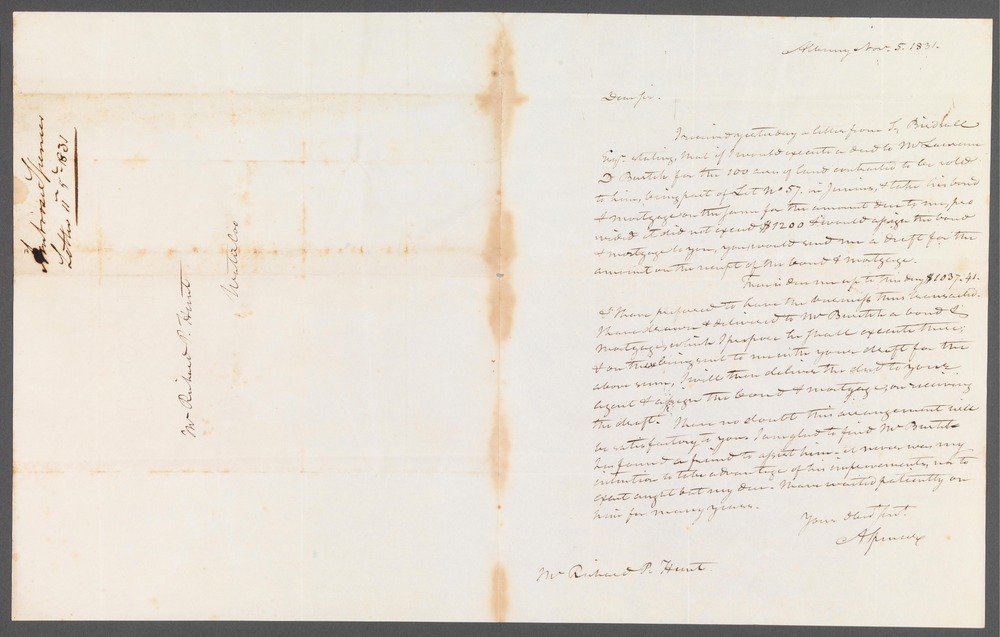 Ambrose Spencer
Letter 11 mo 5th 1831
Mr Richard P. Hunt
Waterloo
Albany Nov. 5. 1831.
Dear sir.
I received yesterday a letter from S. Birdsall
Esqr. stating, that if I would execute a deed to Mr Lawrence
D Burtch for the 100 acres of land contracted to be sold
to him, being part of Lot No 57. in Junius, & take his bond
& mortgage on the same for the amount due to me, pro
vided it did not exceed $1200 & would assign the bond
& mortgage to you, you would send me a draft for the
amount on the receipt of the bond & mortgage.
There is due me up to this day $1037.41.
& I have prepared to have the business thus transacted.
I have drawn & delivered to Mr Burtch a bond &
mortgage, which I propose he shall execute there,
& on their being sent to me with your draft for the
above sum, I will then deliver the deed to your
agent & assign the bond & mortgage, on receiving
the draft. I have no doubt this arrangement will
be satisfactory to you. I am glad to find Mr Burtch
has found a friend to assist him. it never was my
intention to take advantage of his improvements, nor to
exact aught but my due. I have waited patiently on
him for many years.
Your obed svt.
A Spencer
Mr Richard P. Hunt.